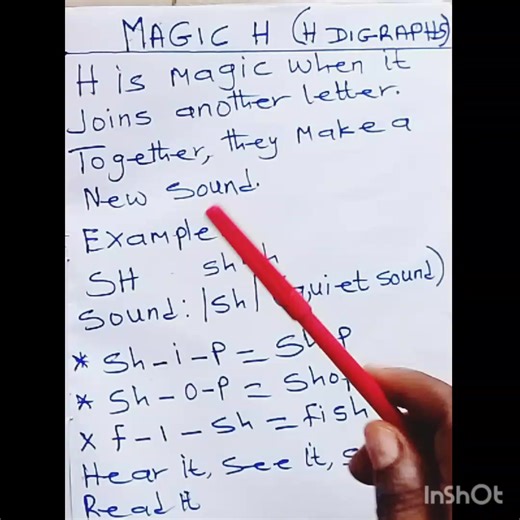 MAGIC H (H DIGRAPHS)
H is magic when it
Joins another letter.
Together, they make a
New sound.
Example
SH
Sound: |sh| quiet sound)
* Sh-i-p = Ship
* Sh-o-p = Shop
x f-i-sh = fish
Hear it, see it,
Read it
InShOt